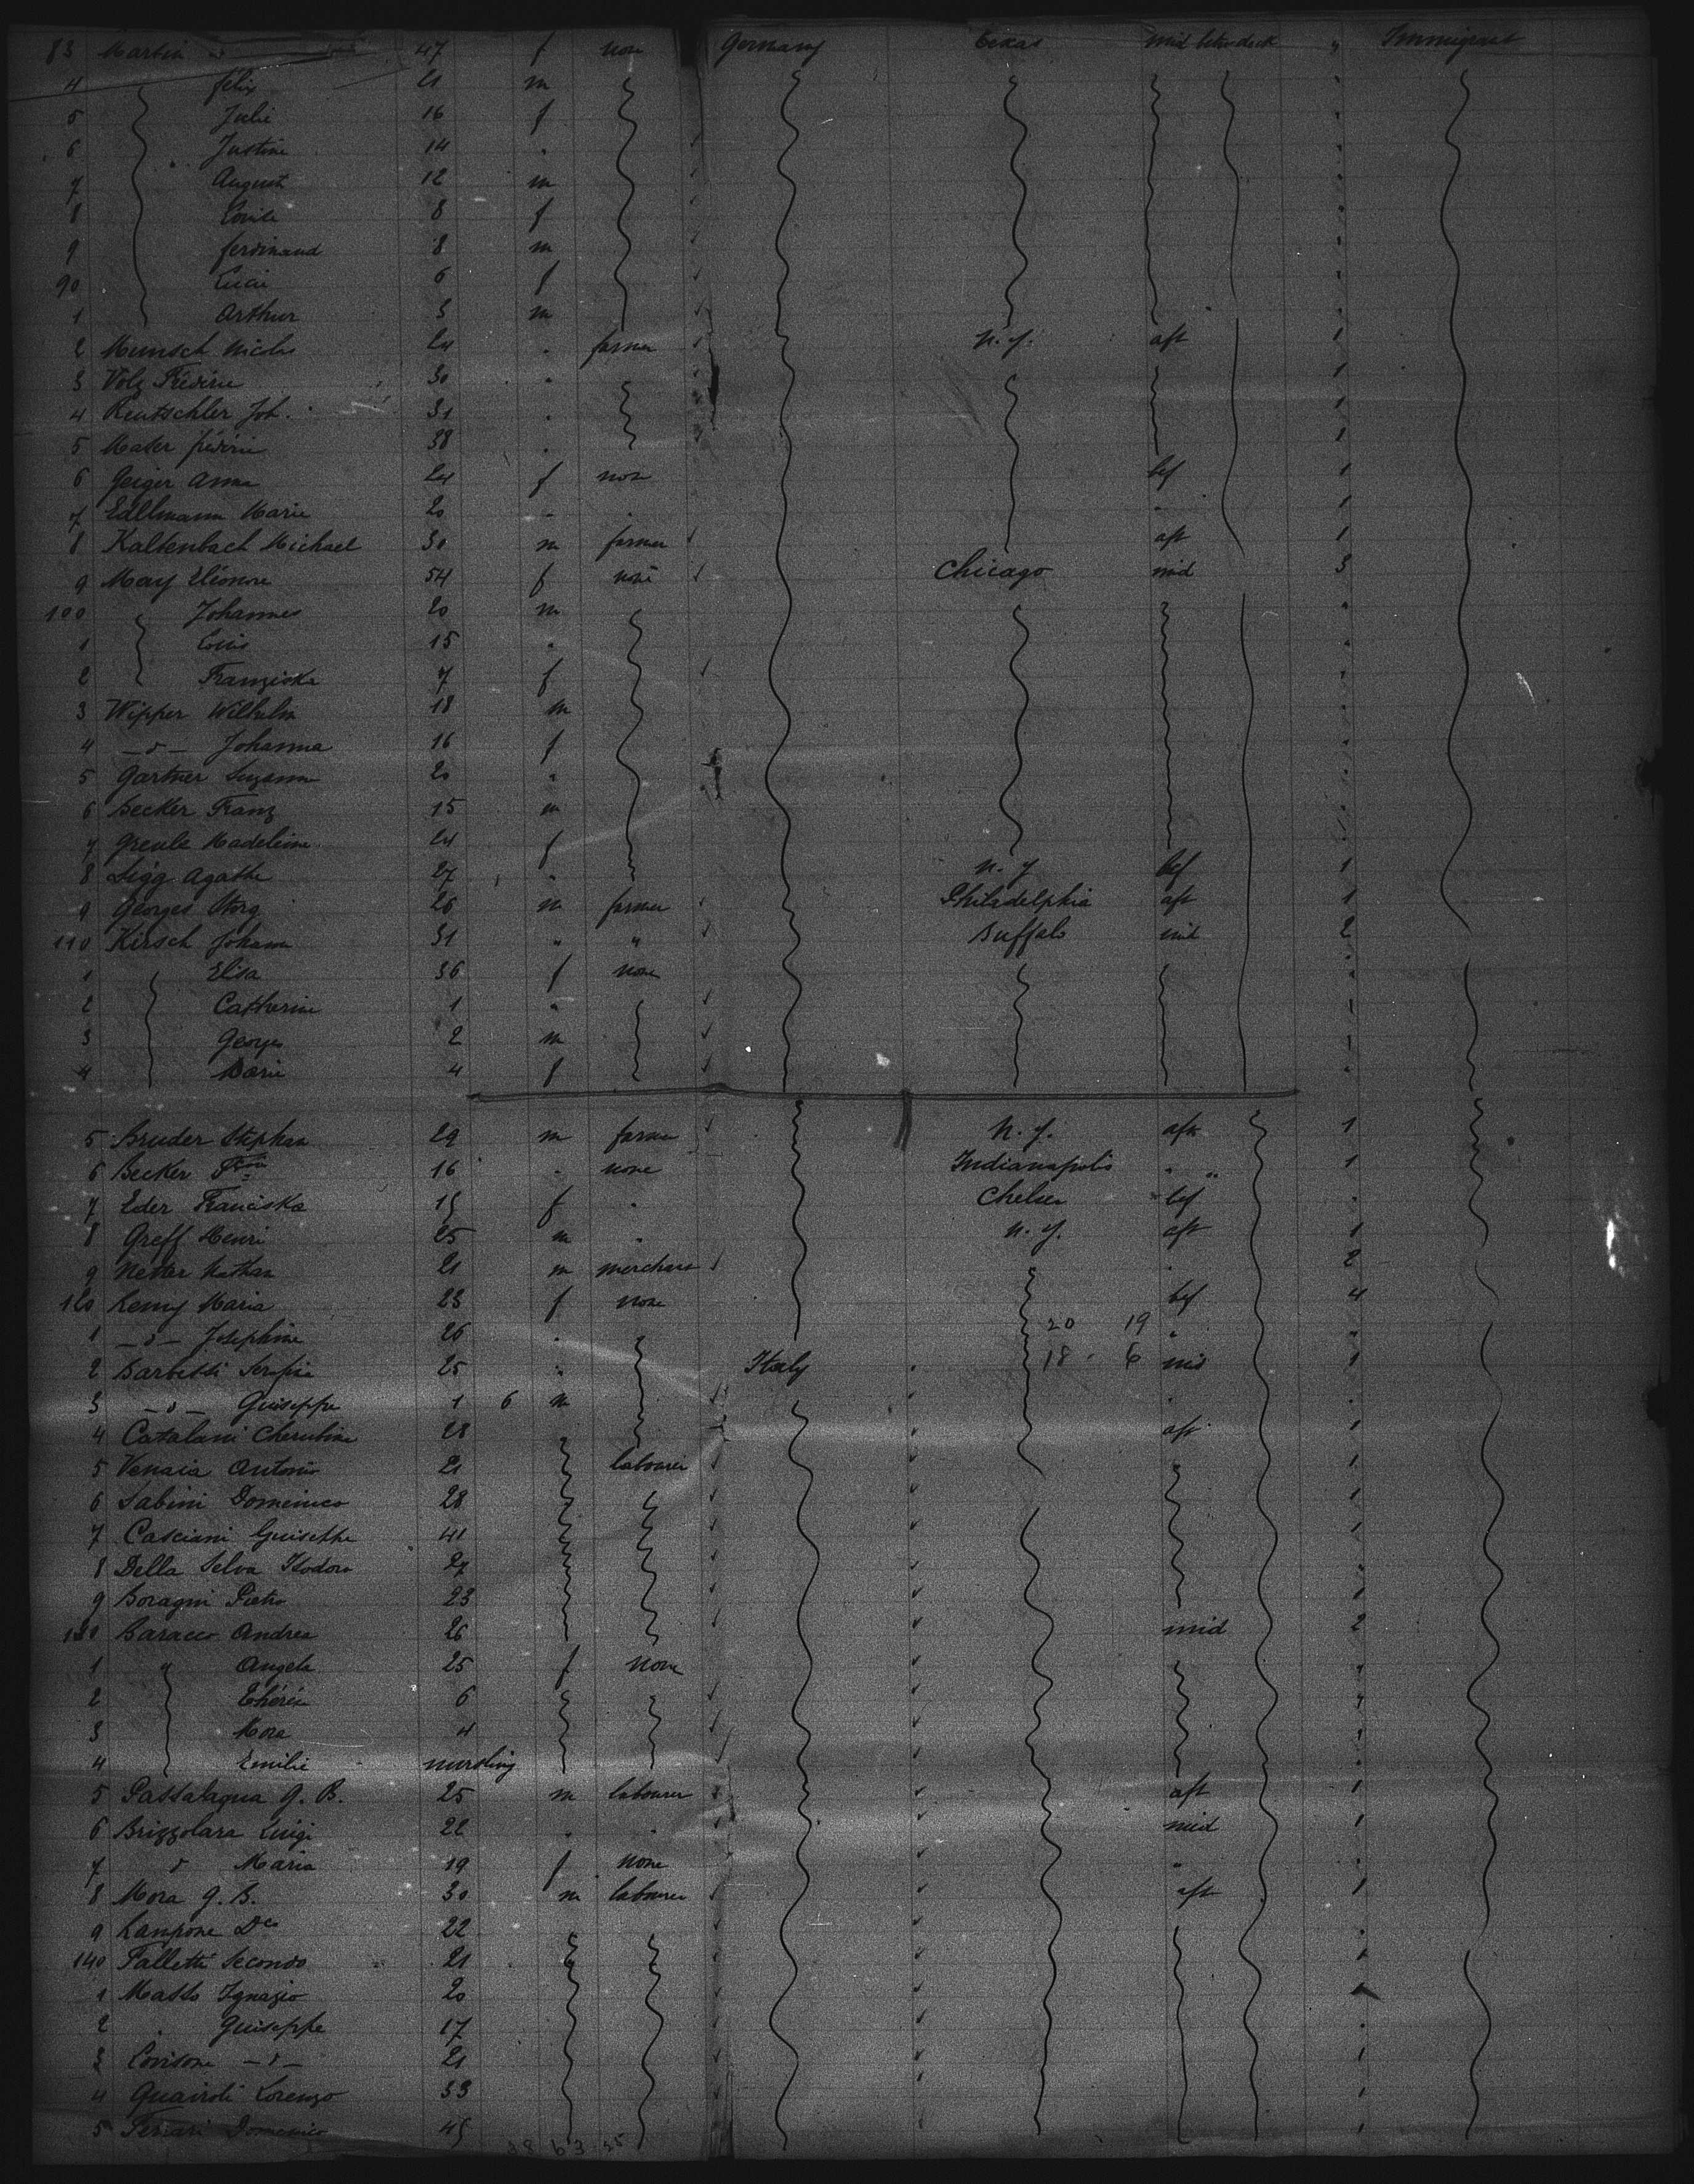 83 Martin 47 f none Germany Texas mid betw deck " Immigrant
4 felix 21 m
5 Julie 16 f
6 Justine 14 "
7 August 12 m
8 8 f
9 ferdinand 8 m
90 6 f
1 Arthur 3 m
2 Munsch Nicolas 24 " farmer N.Y. aft 1
3 Volz 30 " 1
4 Rentschler Joh. 31 " 1
5 38 " 1
6 Geiger Anna 24 f none bef 1
7 Edlmann Marie 20 " " " 1
8 Kaltenbach Michael 30 m farmer aft 1
9 May Eléonore 54 f none Chicago mid 3
100 Johannes 20 m "
1 Louis 15 " "
2 Franziska 7 f "
3 Wipper Wilhelm 18 m "
4 - d - Johanna 16 f "
5 Gartner Suzanne 20 " "
6 Becker Franz 15 m
7 Greule Madeleine 24 f
8 Ligg Agathe 27 " N.Y. bef 1
9 Georges 26 m farmer Philadelphia aft 1
110 Kirsch Johann 31 " " Buffalo mid 2
1 Elisa 36 f none "
2 Catherine 1 "
3 Georges 2 m
4 Marie 4 f "
5 Bruder Stephan 29 m farmer N.Y. aft 1
6 Becker 16 " none Indianapolis " " 1
7 Eder Franciska 19 f " Chelsea bef "
8 Greff Henri 25 m " N.Y. aft 1
9 Netter Nathan 21 m merchant " 2
120 Remy Maria 23 f none bef 4
1 - d - Josephine 26 " 20 19 " "
2 Barbetti 25 " Italy 18 . 6 mid 1
3 - d - Guiseppe 1 6 m "
4 Catalani Cherubino 28 aft 1
5 Venaia Antonio 21 labourer 1
6 Sabini Domenico 28 1
7 Casciani Guiseppe 41 1
8 Della Selva Isodoro 27 "
9 Boragni Pietro 23 1
130 Baracco Andrea 26 mid 2
1 " Angela 25 f none "
2 Thérèse 6 "
3 Mora 4 "
4 Emilie nursling "
5 Passalaqua G. B. 25 m labourer aft 1
6 Brizzolara Luigi 22 " " mid 1
7 d Maria 19 f none " "
8 Mora G. B. 30 m labourer aft 1
9 Lanpone 22 "
140 Falletti Secondo 21 1
1 Masso Ignazio 20
2 " Guiseppe 17 "
3 - d - 21 1
4 Quairoli Lorenzo 33 1
5 Ferrari Domenico 45 1
28 63 25